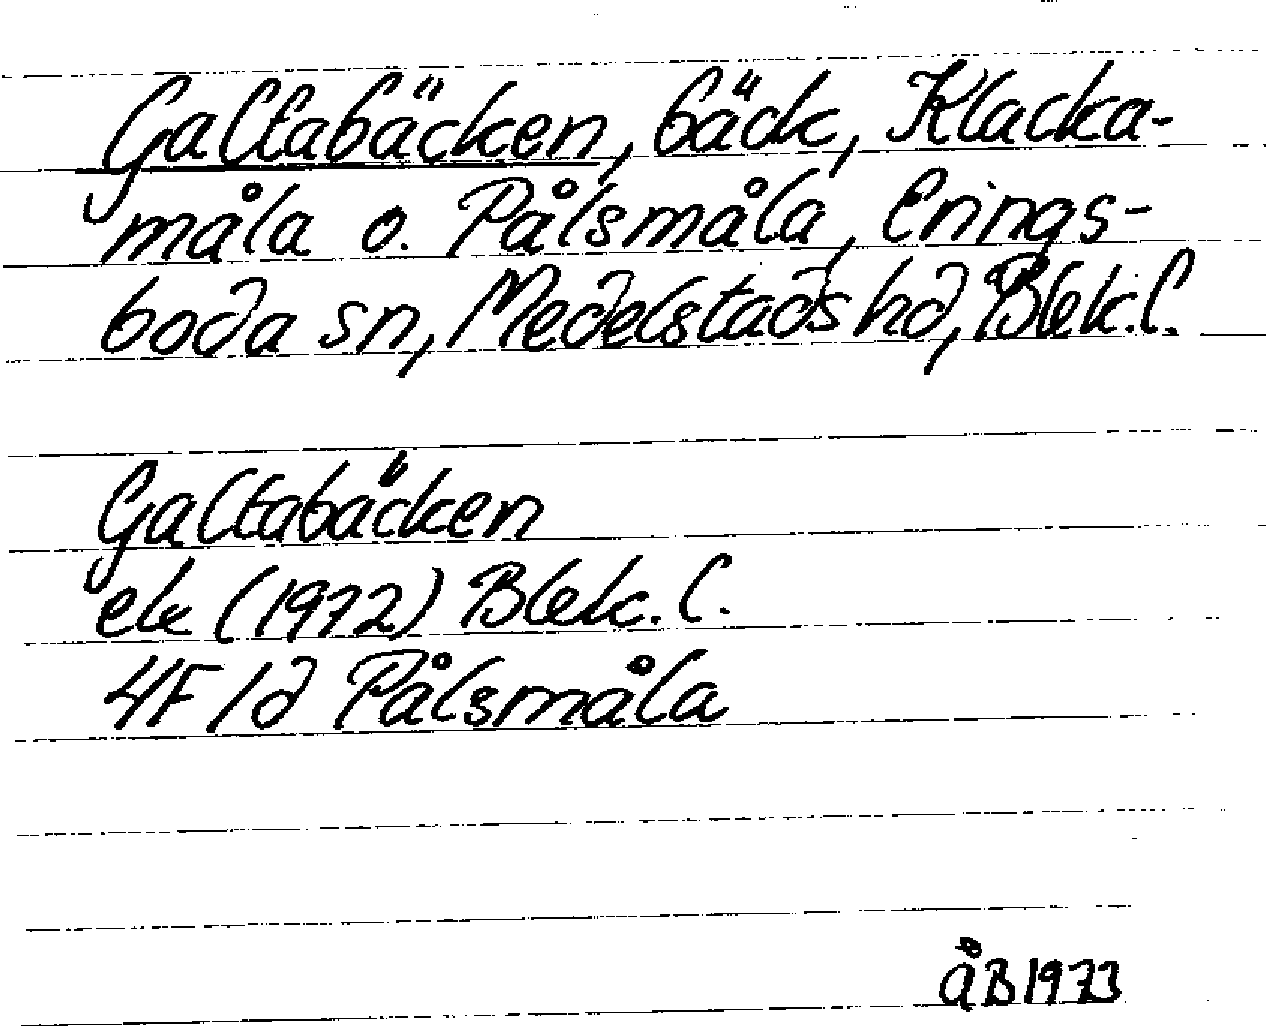 Galtabäcken, bäck, Klacka-
måla o. Pålsmåla, Erings-
boda sn, Medelstads hd, Blek.l.
Galtabäcken
ek (1972) Blek.l.
4F 1d Pålsmåla
ÅB 1973